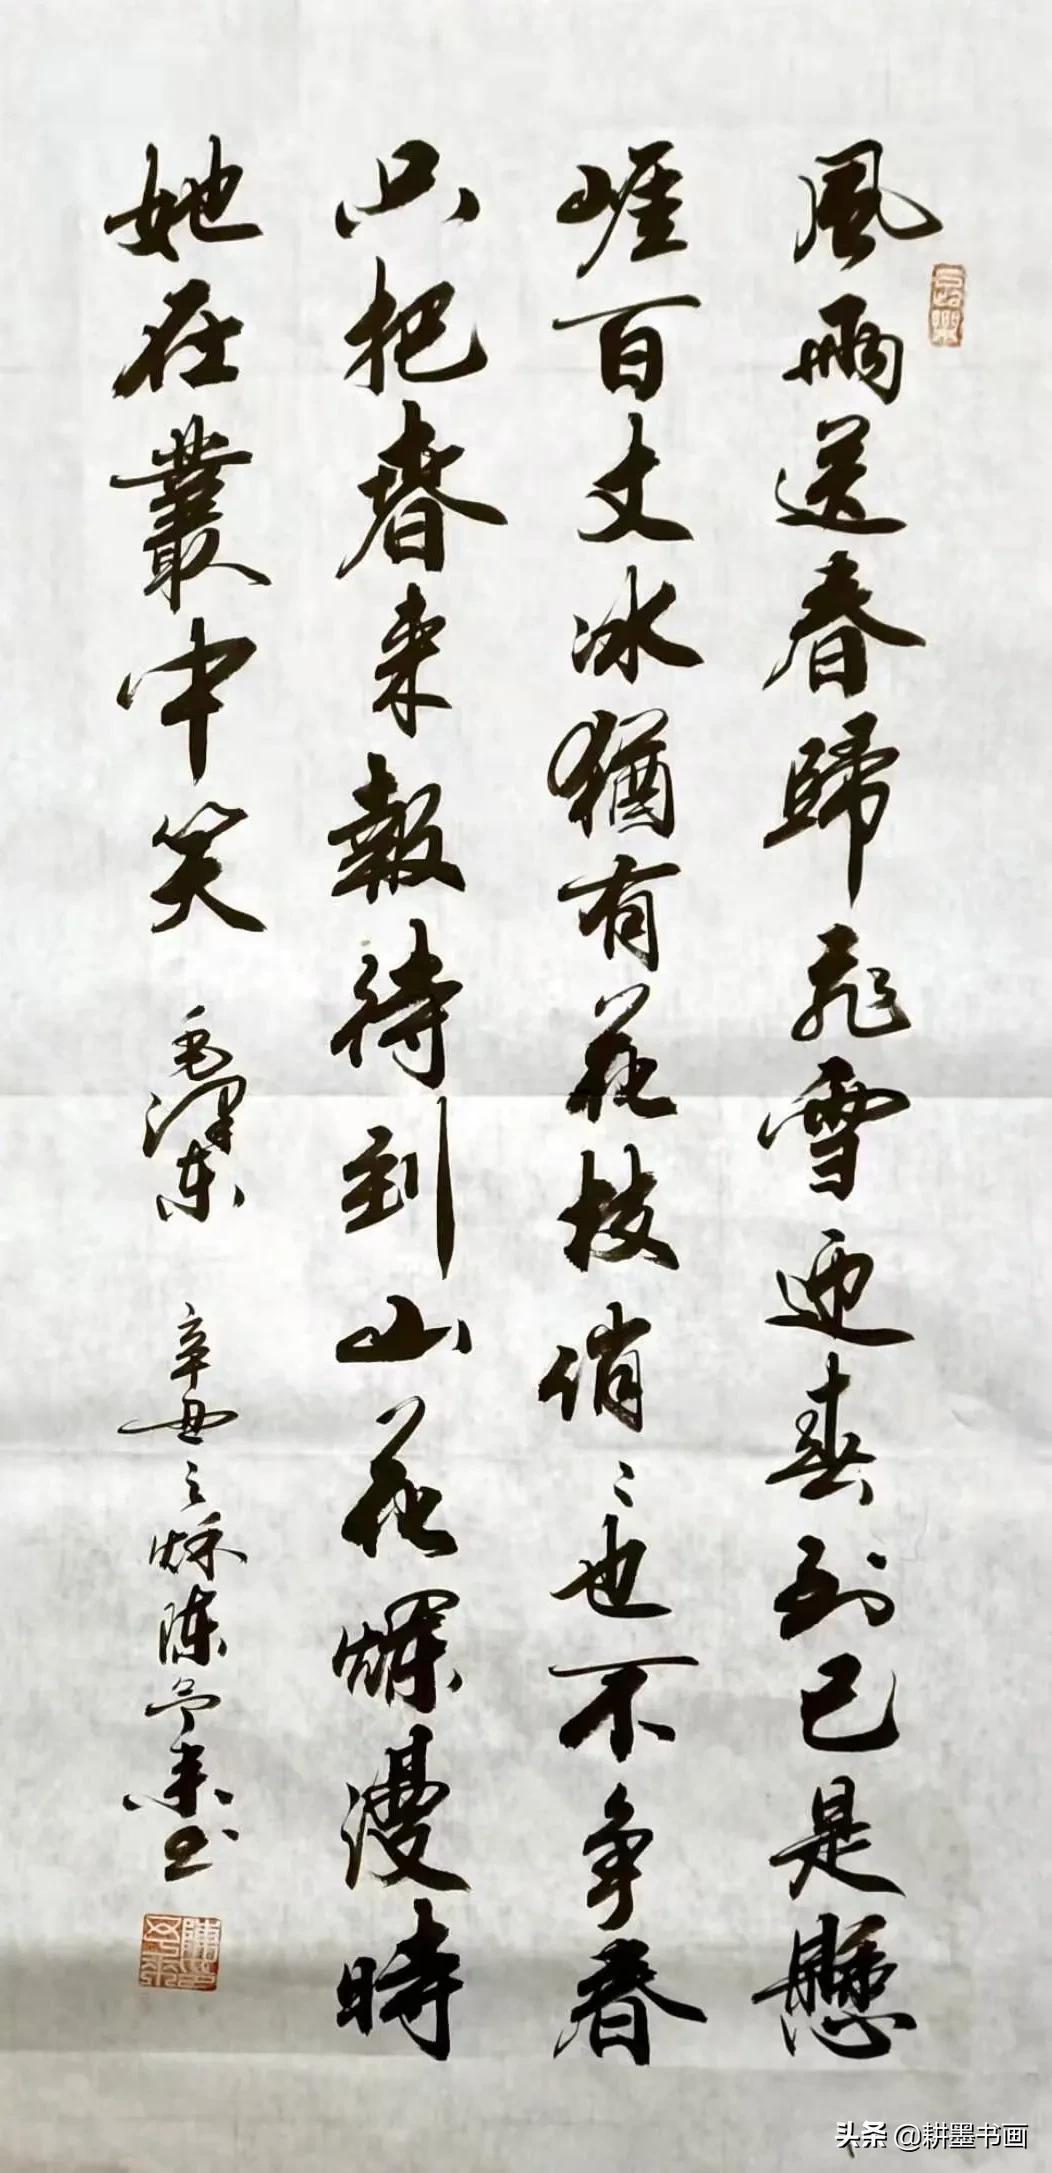 風雨送春歸飛雪迎春到已是懸
崖百丈冰猶有花枝俏〻也不争春
只把春来報待到山花爛漫時
她在叢中笑 毛澤东 辛丑之秌陈来书
头条 @耕墨书画